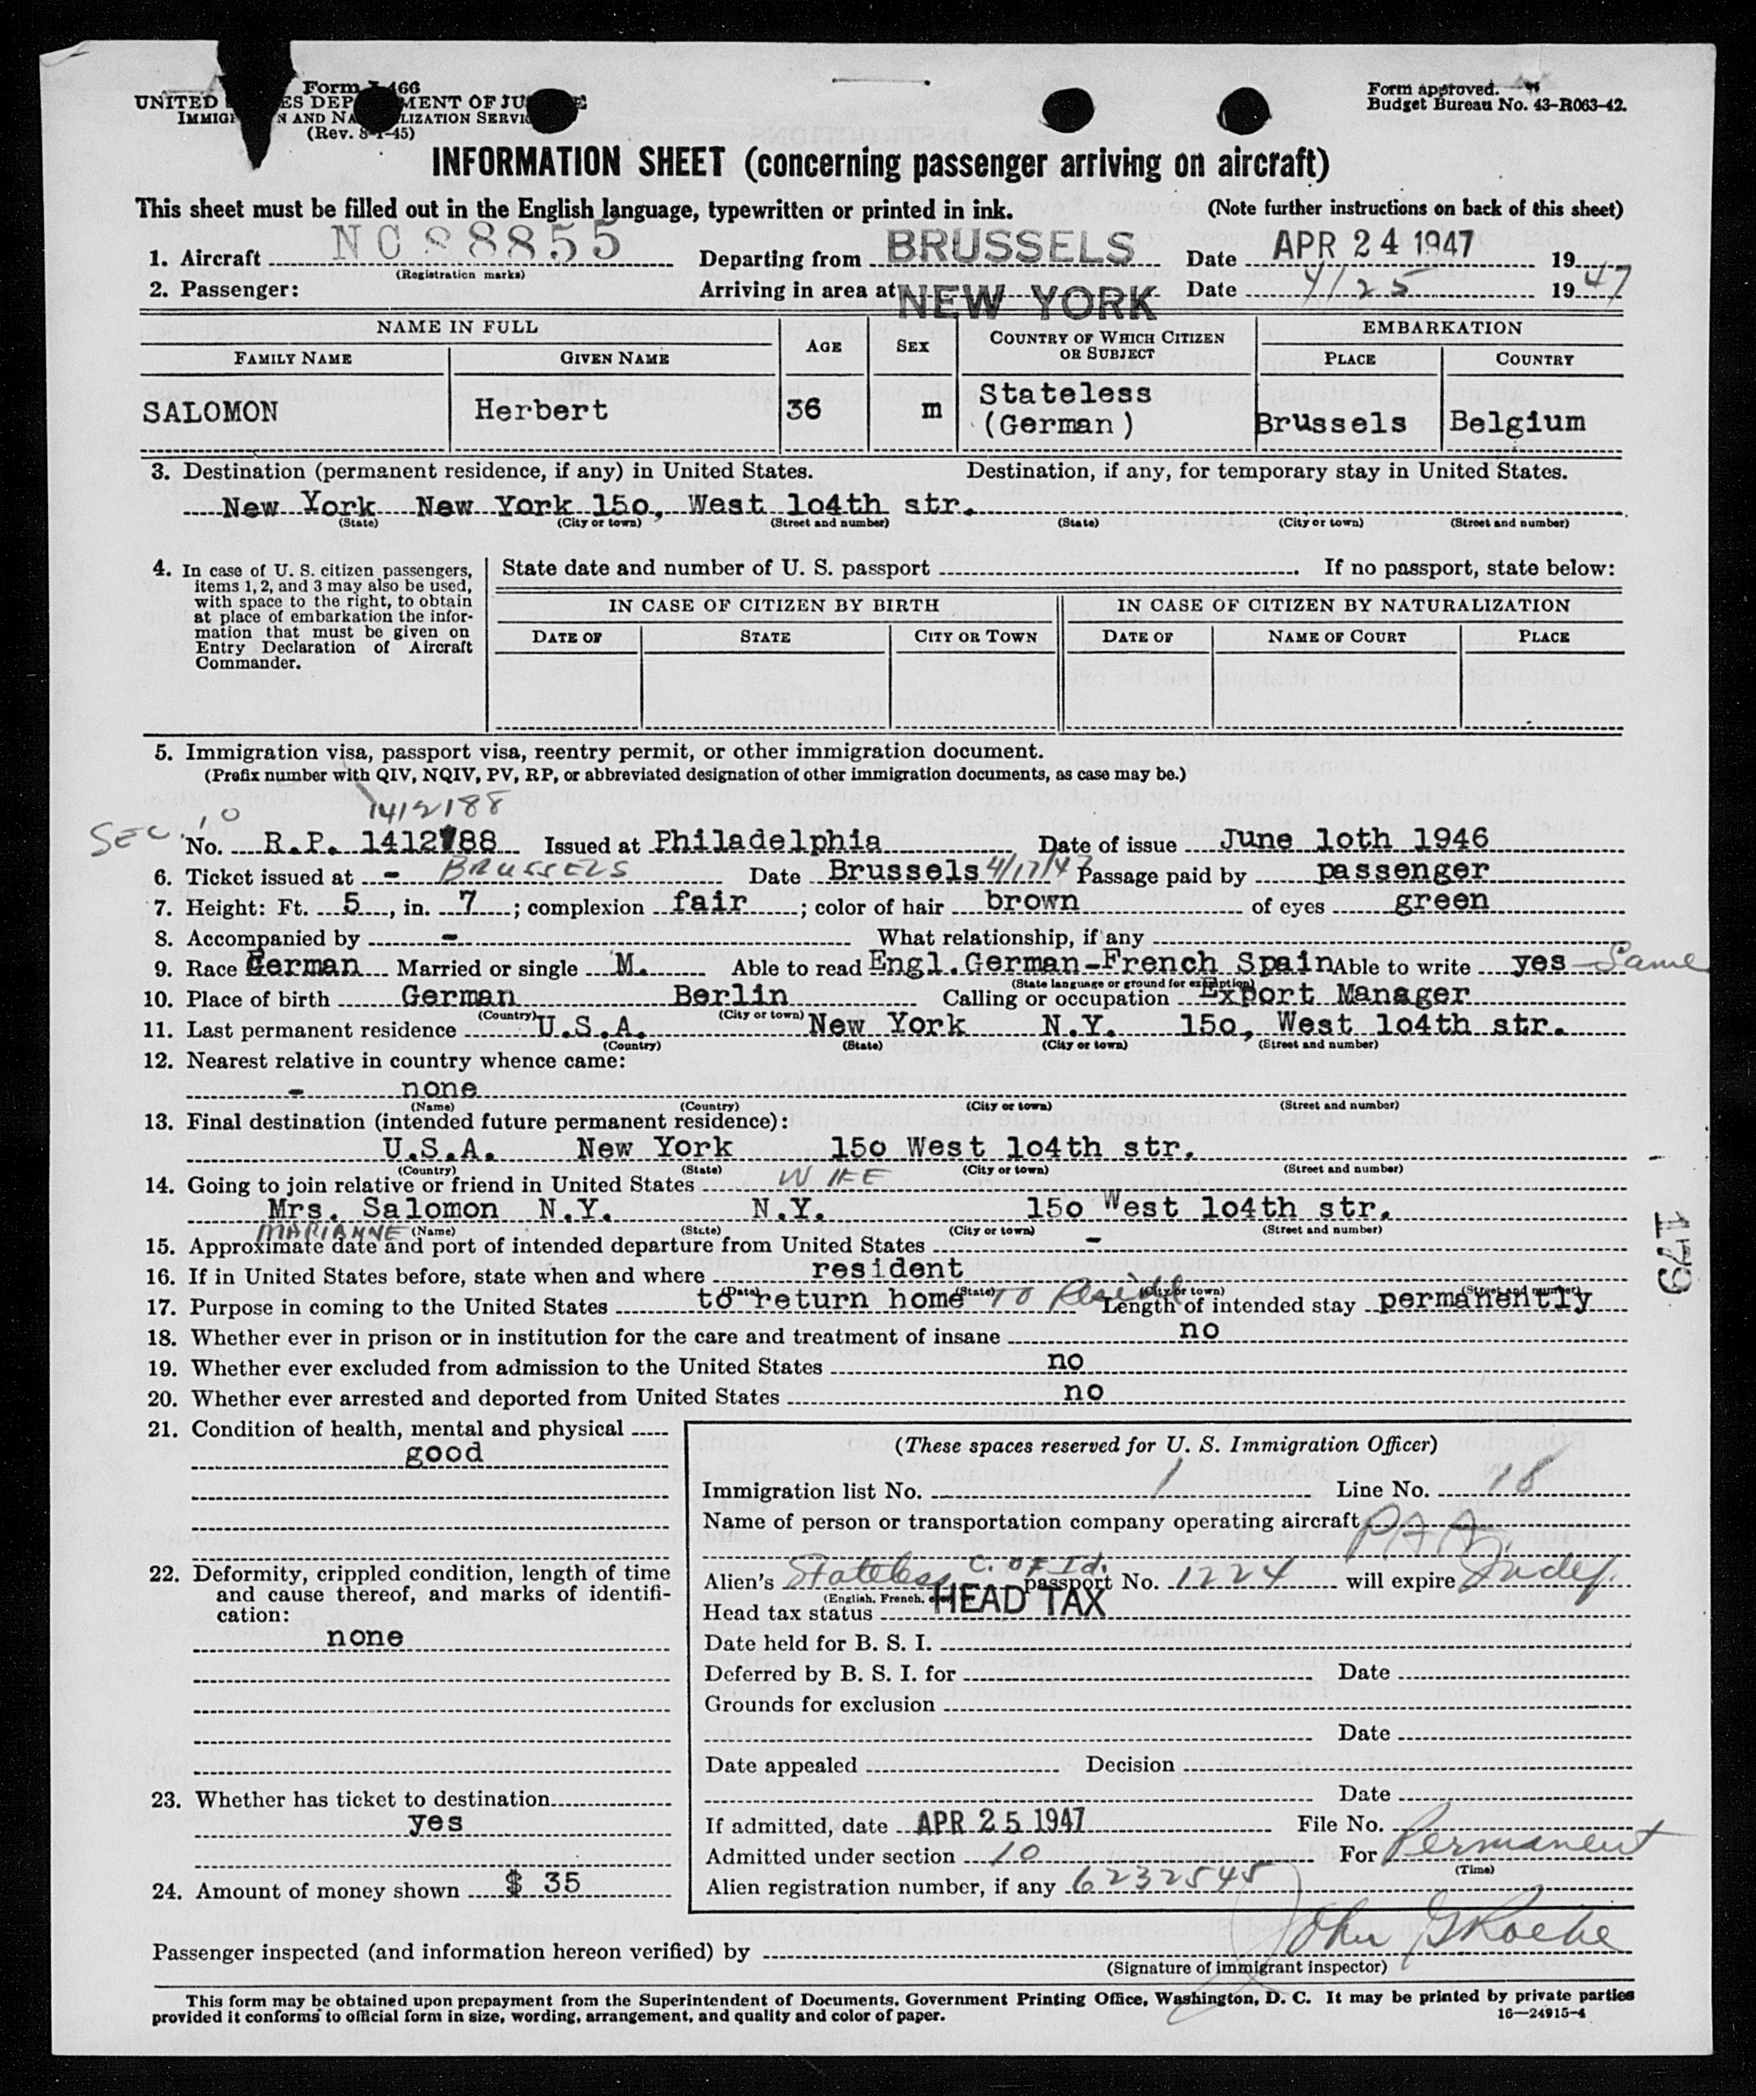 Form I-466
UNITED STATES DEPARTMENT OF JUSTICE
IMMIGRATION AND NATURALIZATION SERVICE
(Rev. 8-1-45)
Form approved.
Budget Bureau No. 43-R063-42.
INFORMATION SHEET (concerning passenger arriving on aircraft)
This sheet must be filled out in the English language, typewritten or printed in ink. (Note further instructions on back of this sheet)
1. Aircraft NC 88855 Departing from BRUSSELS Date APR 24 1947 19
(Registration marks)
2. Passenger: Arriving in area at NEW YORK Date 4/25 19 47
NAME IN FULL AGE SEX COUNTRY OF WHICH CITIZEN OR SUBJECT EMBARKATION
FAMILY NAME GIVEN NAME PLACE COUNTRY
SALOMON Herbert 36 m Stateless (German) Brussels Belgium
3. Destination (permanent residence, if any) in United States. Destination, if any, for temporary stay in United States.
New York New York 15o, West 1o4th str.
(State) (City or town) (Street and number) (State) (City or town) (Street and number)
4. In case of U. S. citizen passengers,
items 1, 2, and 3 may also be used,
with space to the right, to obtain
at place of embarkation the infor-
mation that must be given on
Entry Declaration of Aircraft
Commander.
State date and number of U. S. passport . If no passport, state below:
IN CASE OF CITIZEN BY BIRTH IN CASE OF CITIZEN BY NATURALIZATION
DATE OF STATE CITY OR TOWN DATE OF NAME OF COURT PLACE
5. Immigration visa, passport visa, reentry permit, or other immigration document.
(Prefix number with QIV, NQIV, PV, RP, or abbreviated designation of other immigration documents, as case may be.)
1412188
SEC. 10
No. R.P. 1412188 Issued at Philadelphia Date of issue June 1oth 1946
6. Ticket issued at - BRUSSELS Date Brussels 4/17/47 Passage paid by passenger
7. Height: Ft. 5, in. 7; complexion fair; color of hair brown of eyes green
8. Accompanied by - What relationship, if any
9. Race German Married or single M. Able to read Engl.German-French Spain Able to write yes - Same
(State language or ground for exemption)
10. Place of birth German Berlin Calling or occupation Export Manager
(Country) (City or town)
11. Last permanent residence U.S.A. New York N.Y. 15o, West 1o4th str.
(Country) (State) (City or town) (Street and number)
12. Nearest relative in country whence came:
- none
(Name) (Country) (City or town) (Street and number)
13. Final destination (intended future permanent residence):
U.S.A. New York 15o West 1o4th str.
(Country) (State) (City or town) (Street and number)
14. Going to join relative or friend in United States WIFE
Mrs. Salomon N.Y. N.Y. 15o West 1o4th str.
MARIANNE (Name) (State) (City or town) (Street and number)
15. Approximate date and port of intended departure from United States -
16. If in United States before, state when and where resident
(Date) (State) (City or town) (Street and number)
17. Purpose in coming to the United States to return home TO Reside Length of intended stay permanently
18. Whether ever in prison or in institution for the care and treatment of insane no
19. Whether ever excluded from admission to the United States no
20. Whether ever arrested and deported from United States no
21. Condition of health, mental and physical
good
22. Deformity, crippled condition, length of time
and cause thereof, and marks of identifi-
cation:
none
23. Whether has ticket to destination
yes
24. Amount of money shown $ 35
(These spaces reserved for U. S. Immigration Officer)
Immigration list No. 1 Line No. 18
Name of person or transportation company operating aircraft PAA
Alien's Stateless C. OF Id. passport No. 1224 will expire Indef.
(English, French, etc.)
Head tax status HEAD TAX
Date held for B. S. I.
Deferred by B. S. I. for Date
Grounds for exclusion
Date
Date appealed Decision
Date
If admitted, date APR 25 1947 File No.
Admitted under section 10 For Permanent
(Time)
Alien registration number, if any 6232545
179
Passenger inspected (and information hereon verified) by John G Roche
(Signature of immigrant inspector)
This form may be obtained upon prepayment from the Superintendent of Documents, Government Printing Office, Washington, D. C. It may be printed by private parties
provided it conforms to official form in size, wording, arrangement, and quality and color of paper.
16—24915-4